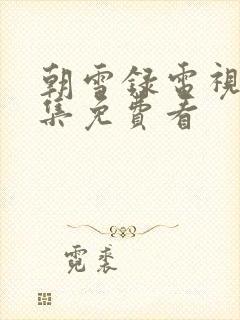 朝雪録電視
集免費看
霓裘